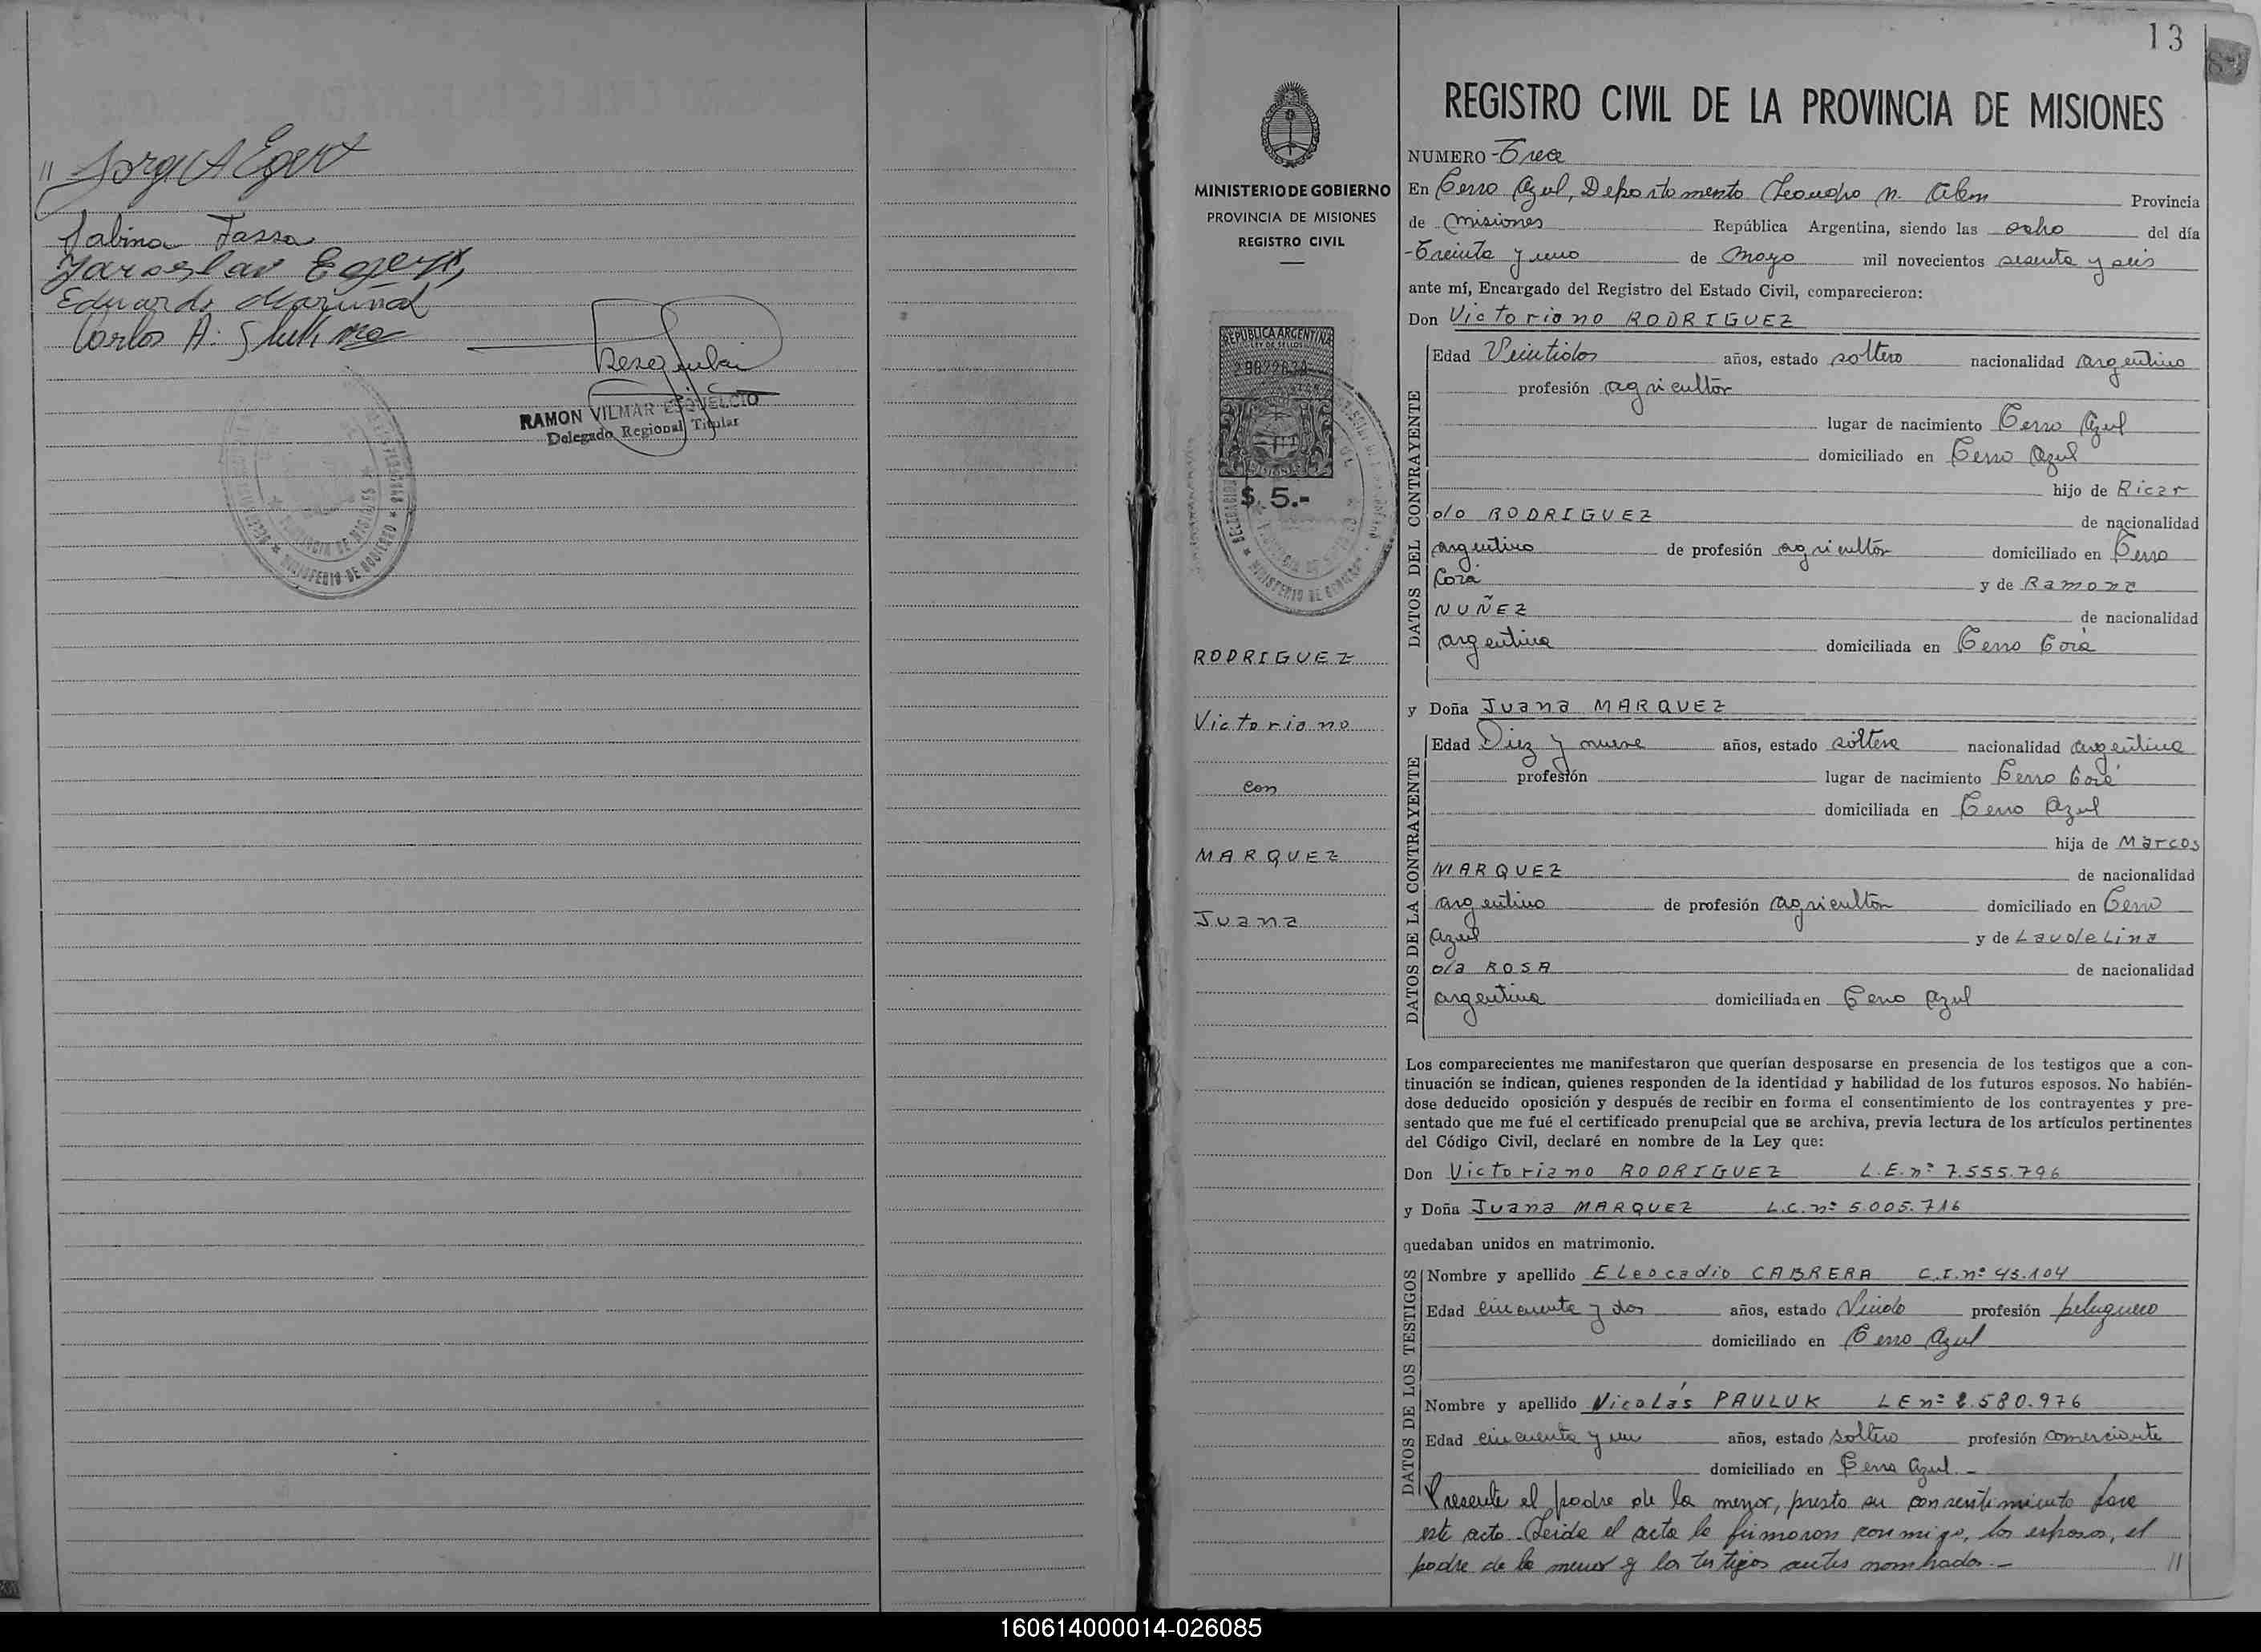 Jorge A Egert
Sabina Tassa
Jaroslav Egert
Eduardo
Carlos A.
RAMON VILMAR ESQUELCIO
Delegado Regional Titular
MINISTERIO DE GOBIERNO
13
REGISTRO CIVIL DE LA PROVINCIA DE MISIONES
MINISTERIO DE GOBIERNO
PROVINCIA DE MISIONES
REGISTRO CIVIL
REPUBLICA ARGENTINA
LEY DE SELLOS
$ 5.-
RODRIGUEZ
Victoriano
con
MARQUEZ
Juana
NUMERO -Tres
En Cerro Azul, Departamento Leandro N. Alem Provincia
de Misiones República Argentina, siendo las ocho del día
-Treinta y uno de Mayo mil novecientos sesenta y seis
ante mí, Encargado del Registro del Estado Civil, comparecieron:
Don Victoriano RODRIGUEZ
DATOS DEL CONTRAYENTE
Edad Veintidos años, estado soltero nacionalidad argentino
profesión agricultor
lugar de nacimiento Cerro Azul
domiciliado en Cerro Azul
hijo de Ricar
do RODRIGUEZ de nacionalidad
argentino de profesión agricultor domiciliado en Cerro
Corá y de Ramona
NUÑEZ de nacionalidad
argentina domiciliada en Cerro Corá
y Doña Juana MARQUEZ
DATOS DE LA CONTRAYENTE
Edad Diez y nueve años, estado soltera nacionalidad argentina
profesión lugar de nacimiento Cerro Corá
domiciliada en Cerro Azul
hija de Marcos
MARQUEZ de nacionalidad
argentino de profesión agricultor domiciliado en Cerro
Azul y de Laudelina
da ROSA de nacionalidad
argentina domiciliada en Cerro Azul
Los comparecientes me manifestaron que querían desposarse en presencia de los testigos que a con-
tinuación se indican, quienes responden de la identidad y habilidad de los futuros esposos. No habién-
dose deducido oposición y después de recibir en forma el consentimiento de los contrayentes y pre-
sentado que me fué el certificado prenupcial que se archiva, previa lectura de los artículos pertinentes
del Código Civil, declaré en nombre de la Ley que:
Don Victoriano RODRIGUEZ L.E. nº 7.555.796
y Doña Juana MARQUEZ L.C. nº 5.005.716
quedaban unidos en matrimonio.
DATOS DE LOS TESTIGOS
Nombre y apellido ELeocadio CABRERA C.I. nº 43.104
Edad cincuenta y dos años, estado Viudo profesión peluquero
domiciliado en Cerro Azul
Nombre y apellido Nicolás PAULUK L E nº 2.580.976
Edad cincuenta y un años, estado soltero profesión comerciante
domiciliado en Cerro Azul -
Presente el padre de la menor, presta su consentimiento para
este acto. Leida el acta la firmaron conmigo, los esposos, el
padre de la menor y los testigos antes nombrados.- //
160614000014-026085